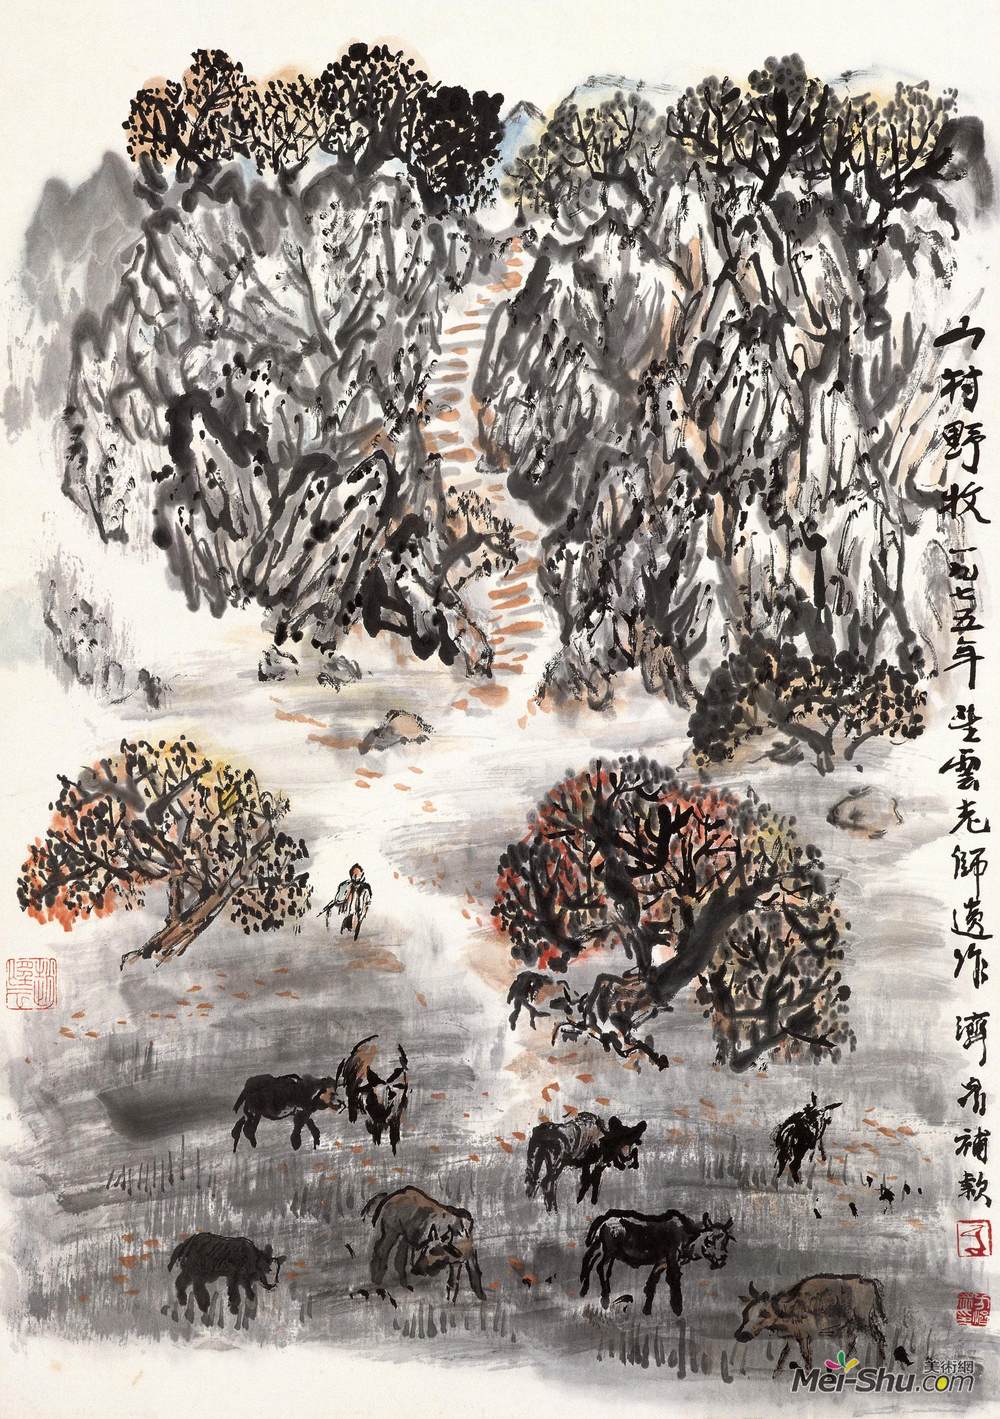 山村野牧 一九七五年 望雲老師遺作 濟有補款
美術網
Mei-Shu.com